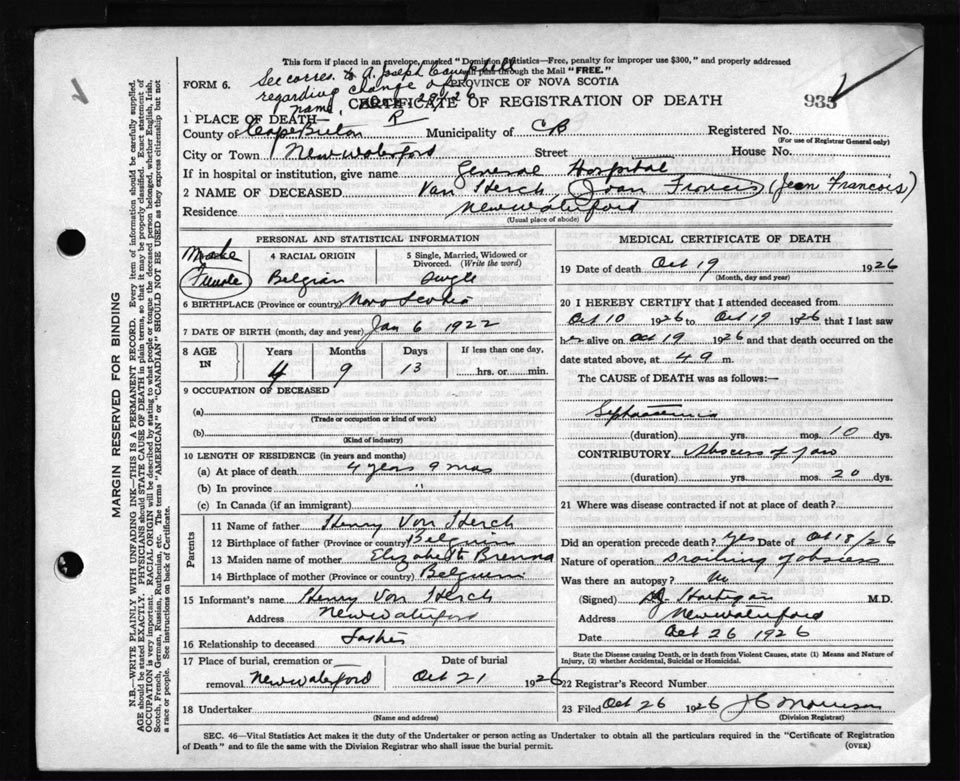 This form if placed in an envelope, marked "Dominion Statistics—Free, penalty for improper use $300," and properly addressed
will pass through the Mail "FREE."
See corres. to A. Joseph
regarding change of
name
FORM 6.
PROVINCE OF NOVA SCOTIA
CERTIFICATE OF REGISTRATION OF DEATH
933
1 PLACE OF DEATH—
County of Cape Breton R Municipality of CB Registered No.
(For use of Registrar General only)
City or Town New Waterford Street House No.
If in hospital or institution, give name General Hospital
2 NAME OF DECEASED Van Herck, Joan Francis (Jean Francois)
Residence New Waterford
(Usual place of abode)
PERSONAL AND STATISTICAL INFORMATION
Male
Female
4 RACIAL ORIGIN
Belgian
5 Single, Married, Widowed or Divorced. (Write the word)
Single
6 BIRTHPLACE (Province or country) Nova Scotia
7 DATE OF BIRTH (month, day and year) Jan 6 1922
8 AGE IN
Years Months Days If less than one day,
4 9 13 hrs. or min.
9 OCCUPATION OF DECEASED
(a)
(Trade or occupation or kind of work)
(b)
(Kind of industry)
10 LENGTH OF RESIDENCE (in years and months)
(a) At place of death 4 years 9 mos
(b) In province "
(c) In Canada (if an immigrant)
Parents
11 Name of father Henry Von Herck
12 Birthplace of father (Province or country) Belguim
13 Maiden name of mother Elizabeth Brenna
14 Birthplace of mother (Province or country) Belguim
15 Informant's name Henry Von Herck
Address New Waterford
16 Relationship to deceased Father
17 Place of burial, cremation or removal New Waterford
Date of burial
Oct 21 1926
18 Undertaker
(Name and address)
MEDICAL CERTIFICATE OF DEATH
19 Date of death Oct 19 1926
(Month, day and year)
20 I HEREBY CERTIFY that I attended deceased from
Oct 10 1926 to Oct 19 1926 that I last saw
her alive on Oct 19 1926 and that death occurred on the
date stated above, at 4 a m.
The CAUSE of DEATH was as follows:—
Septicaemia
(duration) yrs. mos. 10 dys.
CONTRIBUTORY Abscess of jaw
(duration) yrs. mos. 20 dys.
21 Where was disease contracted if not at place of death?
Did an operation precede death? yes Date of Oct 18/26
Nature of operation Draining of abscess
Was there an autopsy? No
(Signed) Hartigan M.D.
Address New Waterford
Date Oct 26 1926
State the Disease causing Death, or in death from Violent Causes, state (1) Means and Nature of
Injury, (2) whether Accidental, Suicidal or Homicidal.
22 Registrar's Record Number
23 Filed Oct 26 1926 J C Morrison
(Division Registrar)
SEC. 46—Vital Statistics Act makes it the duty of the Undertaker or person acting as Undertaker to obtain all the particulars required in the "Certificate of Registration
of Death" and to file the same with the Division Registrar who shall issue the burial permit.
(OVER)
MARGIN RESERVED FOR BINDING
N.B.—WRITE PLAINLY WITH UNFADING INK—THIS IS A PERMANENT RECORD. Every item of information should be carefully supplied.
AGE should be stated EXACTLY. PHYSICIANS should STATE CAUSE OF DEATH in plain terms, so that it may be properly classified. Exact statement of
OCCUPATION is very important. RACIAL ORIGIN will be described by stating to what people or tongue the deceased person belonged, whether English, Irish,
Scotch, French, German, Russian, Ruthenian, etc. The terms "AMERICAN" or "CANADIAN" SHOULD NOT BE USED as they express citizenship but not
a race or people. See instructions on back of Certificate.